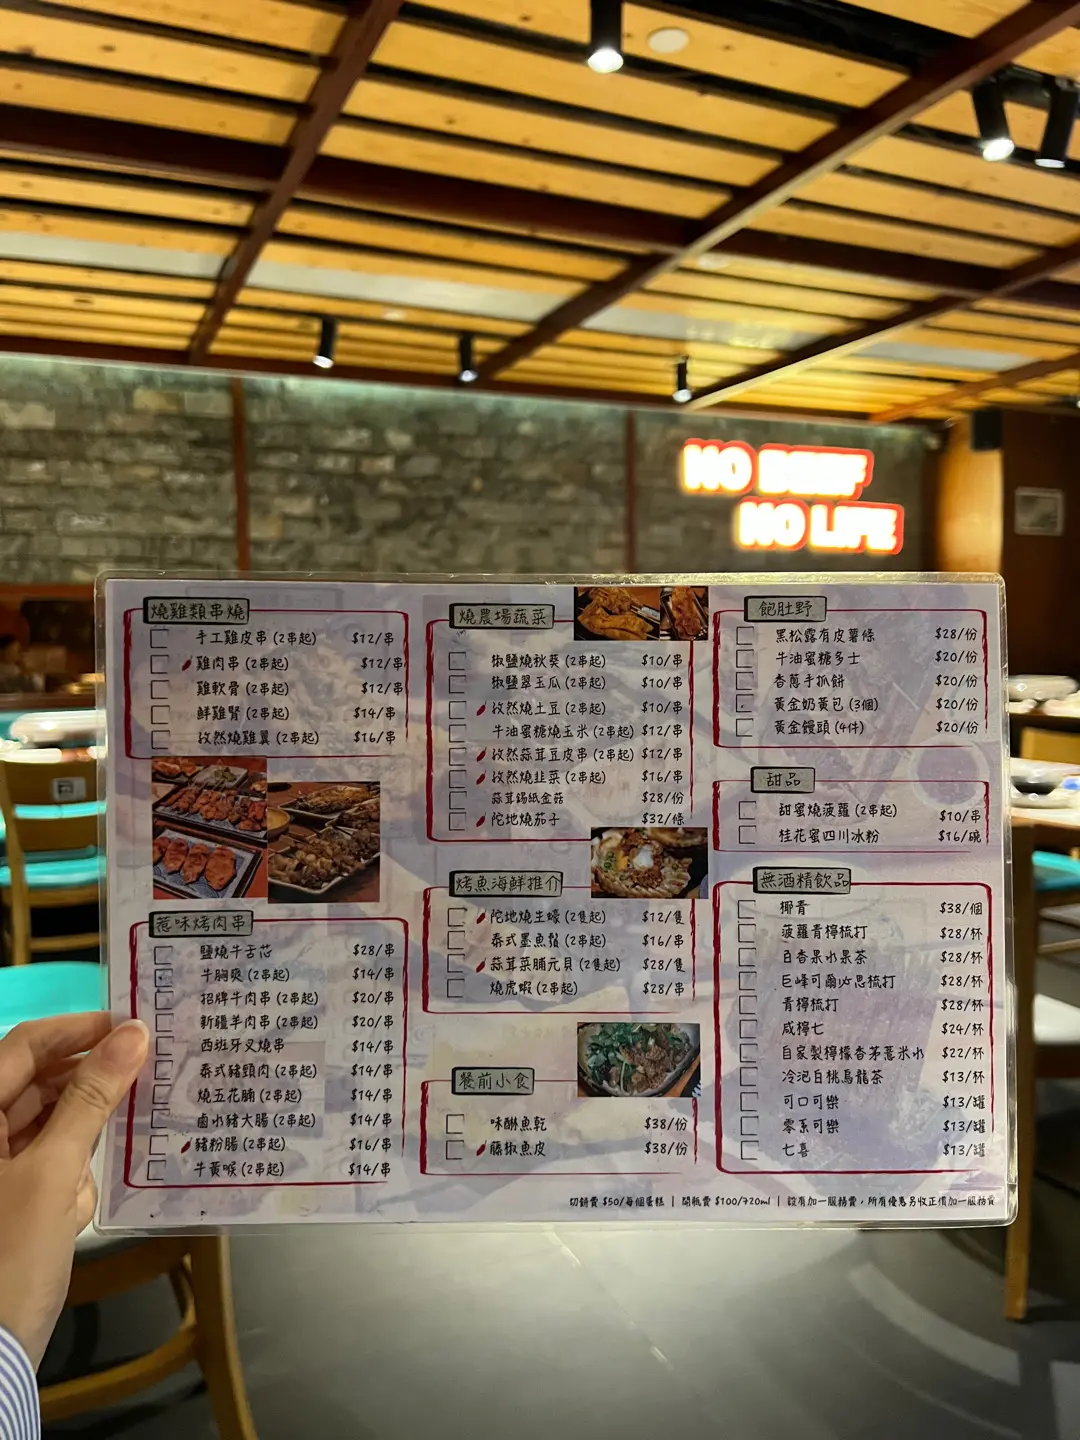 NO BEEF
NO LIFE
燒雞類串燒
手工雞皮串 (2串起) $12/串
雞肉串 (2串起) $12/串
雞軟骨 (2串起) $12/串
鮮雞腎 (2串起) $14/串
孜然燒雞翼 (2串起) $16/串
惹味烤肉串
鹽燒牛舌芯 $28/串
牛胸爽 (2串起) $14/串
招牌牛肉串 (2串起) $20/串
新疆羊肉串 (2串起) $20/串
西班牙叉燒串 $14/串
泰式豬頸肉 (2串起) $14/串
燒五花腩 (2串起) $14/串
鹵水豬大腸 (2串起) $14/串
豬粉腸 (2串起) $16/串
牛黃喉 (2串起) $14/串
燒農場蔬菜
椒鹽燒秋葵 (2串起) $10/串
椒鹽翠玉瓜 (2串起) $10/串
孜然燒土豆 (2串起) $10/串
牛油蜜糖燒玉米 (2串起) $12/串
孜然蒜茸豆皮串 (2串起) $12/串
孜然燒韭菜 (2串起) $16/串
蒜茸錫紙金菇 $28/份
陀地燒茄子 $32/條
烤魚海鮮推介
陀地燒生蠔 (2隻起) $12/隻
泰式墨魚鬚 (2串起) $16/串
蒜茸菜脯元貝 (2隻起) $28/隻
燒虎蝦 (2串起) $28/串
餐前小食
味醂魚乾 $38/份
藤椒魚皮 $38/份
飽肚野
黑松露有皮薯條 $28/份
牛油蜜糖多士 $20/份
香蔥手抓餅 $20/份
黃金奶黃包 (3個) $20/份
黃金饅頭 (4件) $20/份
甜品
甜蜜燒菠蘿 (2串起) $10/串
桂花蜜四川冰粉 $16/碗
無酒精飲品
椰青 $38/個
菠蘿青檸梳打 $28/杯
百香果水果茶 $28/杯
巨峰可爾必思梳打 $28/杯
青檸梳打 $28/杯
咸檸七 $24/杯
自家製檸檬香茅薏米水 $22/杯
冷泡白桃烏龍茶 $13/杯
可口可樂 $13/罐
零系可樂 $13/罐
七喜 $13/罐
切餅費 $50/每個蛋糕 | 開瓶費 $100/720ml | 設有加一服務費，所有優惠另收正價加一服務費